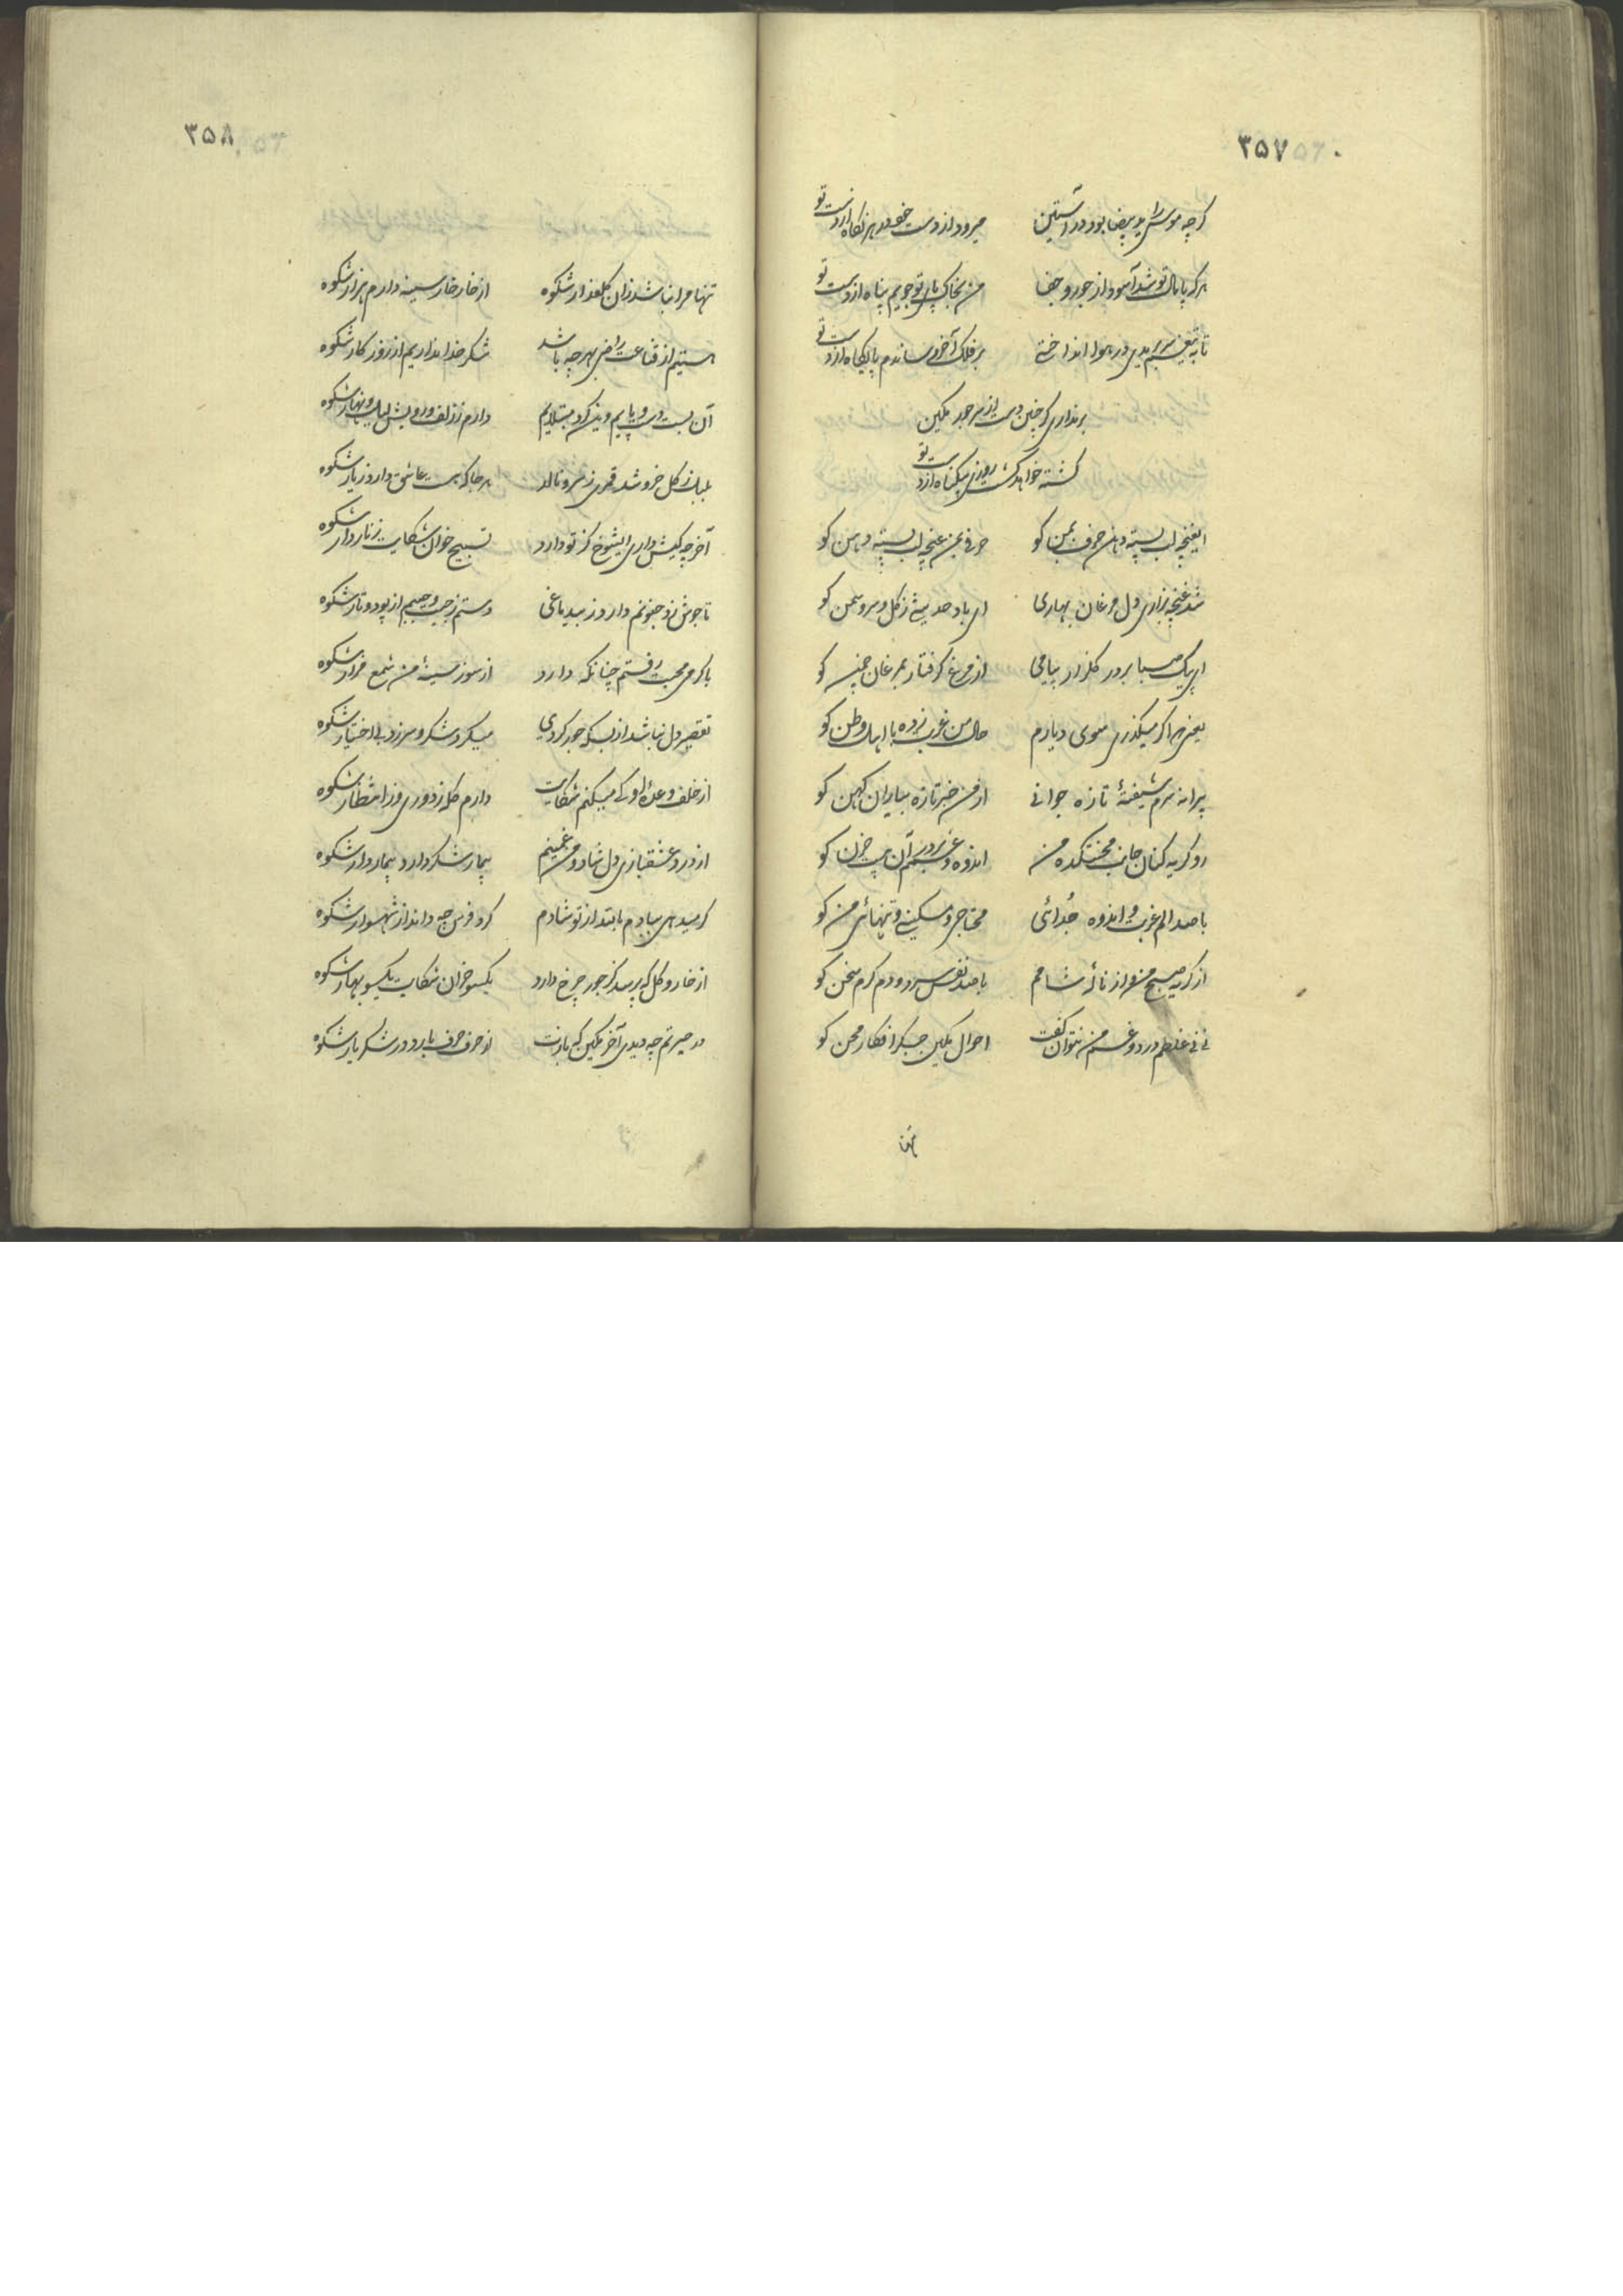 ۳۵۷
گرچه موسی را ید بیضا بود در آستین میرود از دست خود هر نگاه از دست تو
هر که پامال تو شد آسود از جور و جفا من بخاک پای تو جویم پناه از دست تو
تا به تیغم سر بریدی در هوا انداختی بر فلک آخر رساندم کلاه از دست تو
برنداری گر چنین دست از سر جور مکین
کشته خواهد گشت روزی بیگناه از دست تو
ایغنچه لب بسته دهان حرف بمن گو حرفی بمن غنچه لب بسته دهن گو
شد غنچه بزاری دل مرغان بهاری ای باد حدیثی ز گل و سرو سمن گو
ای پیک صبا برور گلزار پیامی از مرغ گرفتار بمرغان چمن گو
یعنی چو اگر میگذری سوی دیارم حال من غربت زده با اهل وطن گو
پیرانه سرم شیفتهٔ تازه جوانی از من خبر تازه بیاران کهن گو
رو گریه کنان جانب محنتکده من اندوه و غم آن بیت حزن گو
با صد الم غربت و اندوه جُدائی محتاجی و مسکینی و تنهائی من گو
از گریه صبح من و از نالهٔ شامم با صد نفس سرد و دم گرم سخن گو
نی نی غلطم درد و غم من نتوان گفت احوال مکین جگر افکار محن گو
تنها
۳۵۸
تنها مرا نباشد زان گلعذار شکوه از خار خار سینه دارم هزار شکوه
هستیم از قناعت راضی بهر چه باشد شکر خدا نداریم از روزگار شکوه
آن بست دست و پایم وین کرد مبتلایم دارم ز زلف و رویش لیل و نهار شکوه
بلبل ز گل خروشد قمری ز سرو نالد هر جا که هست عاشق دارد ز یار شکوه
آخر چه کیش داری ایشوخ کز تو دارد تسبیح خوان شکایت زنار دار شکوه
تا جوش زد جنونم دارد ز بیدماغی دستم ز جیب و جیبم از پود و تار شکوه
با گرمی محبت رفتم چنانکه دارد از سوز سینهٔ من شمع مزار شکوه
تقصیر دل نباشد از بسکه جور کردی میکرد شکر و سرزد بی اختیار شکوه
از خلف وعدهٔ او کی میکنم شکایت دارم گله ز دوری وز انتظار شکوه
از درد عشقبازی دل شاد و من غمینم بیمار شکر دارد بیمار دار شکوه
گر میدهی ببادم باشد از تو شادم گرد فرس چه داند از شهسوار شکوه
از خار و گل که پرسد کز جور چرخ دارد یکسو خزان شکایت یکسو بهار شکوه
در حیرتم چه دیدی آخر مکین که بازت از حرف حرف بارد در شکر یار شکوه